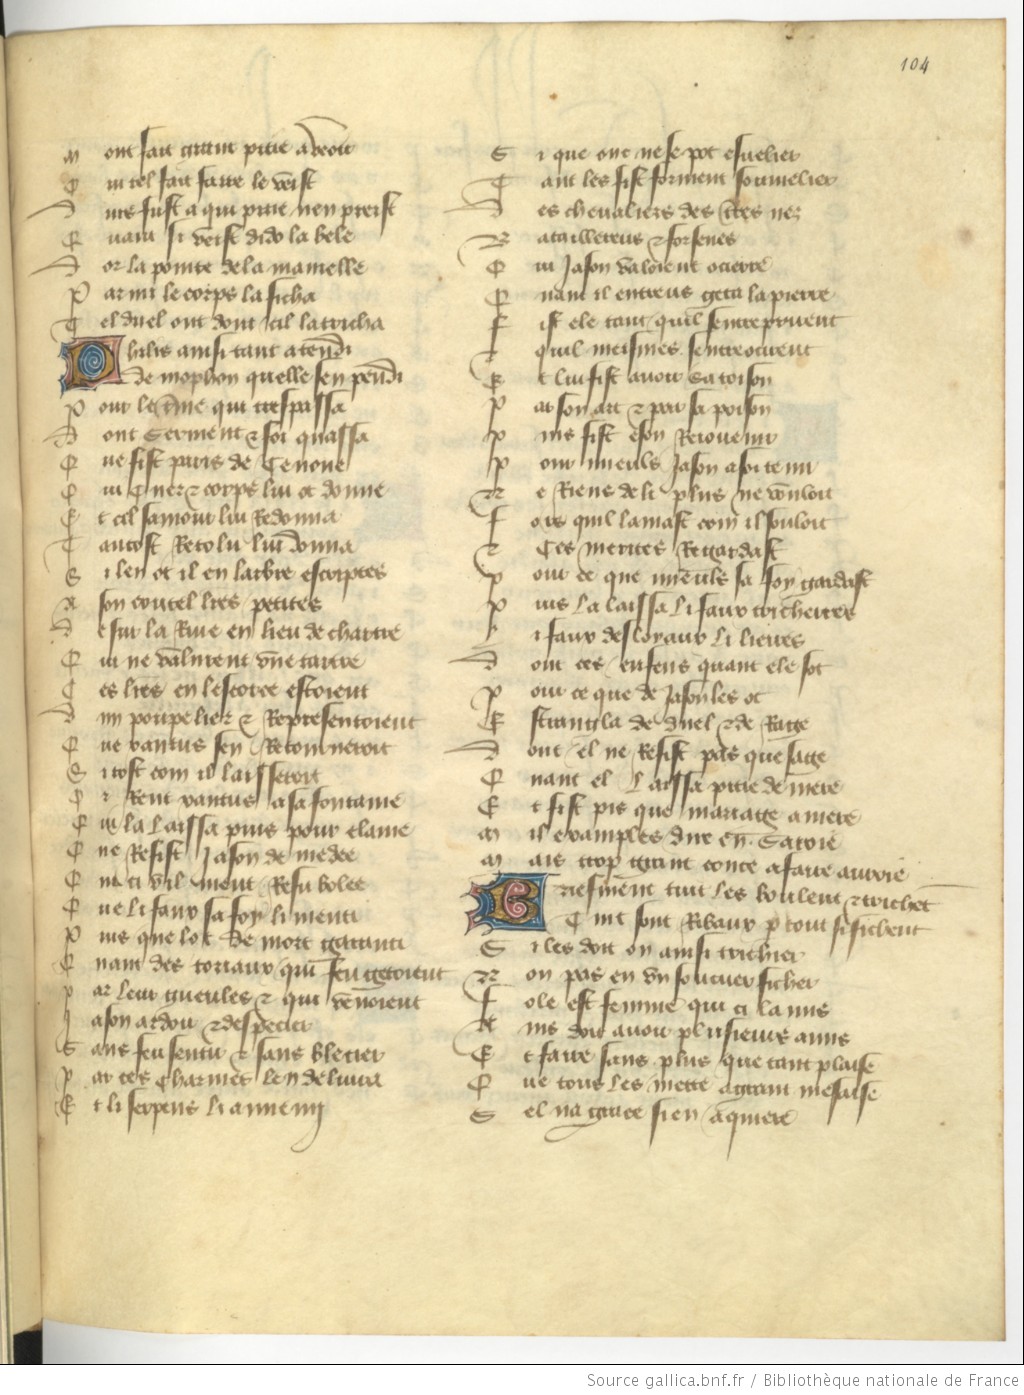 104
M ont fait grant pitie a veoir
Q ui tel fait faire le veist
D urs fust a qui pitie nen preist
Q uant si veist dido la bele
D or la pointe de la mamelle
P ar mi le corps la ficha
T el duel ont dont cil la tricha
Philis ainsi tant atendi
de mophon quelle sen pendi
P our le tme qui trespassa
D ont serment et foi quassa
Q ue fist paris de Cenone
Q ui Cuer et corps lui ot donne
E t cil samour lui Redonna
T antost Retolu lui donna
S i len ot il en larbre escriptes
A son coutel letres petites
D esur la Rive en lieu de chartre
Q ui ne valurent une tartre
C es letres en lescorce estoient
D un poupelier et Representoient
Q ue xantus sen Retourneroit
S i tost com il laisseroit
O r Rent xantus a sa fontaine
Q ui la laissa puis pour elaine
Q ue Refist Jason de medee
Q ui si vil ment Refu bolee
Q ue li faux sa foy li menti
P uis que lot de mort garanti
Q uant des toriaux qui feu getoient
P ar leur gueules et qui venoient
J ason ardoir et despecier
S ans feu sentir et sans blecier
P ar ces Charmes len delivra
E t li serpens li anneinj
S i que onc ne se pot esveillier
T ant les fist forment soumeilier
D es chevaliers des tres nez
B ataillereus et forsenes
Q ui Jason valoient ocierre
Q uant il entreus geta la pierre
F ist ele tant quil sentreprirent
E quil meismes sentreocirent
E t lui fist avoir sa toison
P ar son art et par sa poison
P uis fist eson Rejouenir
P our mieuls Jason a soi tenir
R e Riens de li plus ne vouloit
F ors quil lamast com il souloit
E Ces merites Regardast
P our ce que mieuls sa foy gardast
P uis la laissa li faux tricherres
L i faux desloyaux li lierres
D ont ces enfens quant ele sot
P our ce que de Jason les ot
E strangla de duel et de Rage
D ont el ne Refist pas que sage
Q uant el Laissa pitie de mere
E t fist pis que marrastre amere
M il examples dire en Saroie
M ais trop grant conte a faire auroie
Briefment tuit les boulent et trichet
Tuit sont Ribaux p tout sifichent
S i les doit on ainsi trichier
N on pas en un son cuer ficher
F ole est femme qui si la mis
A ins doit avoir plusieurs amis
E t faire sans plus que tant plaise
Q ue tous les mette a grant mesaise
S el na grace si en aquiere
Source gallica.bnf.fr / Bibliothèque nationale de France